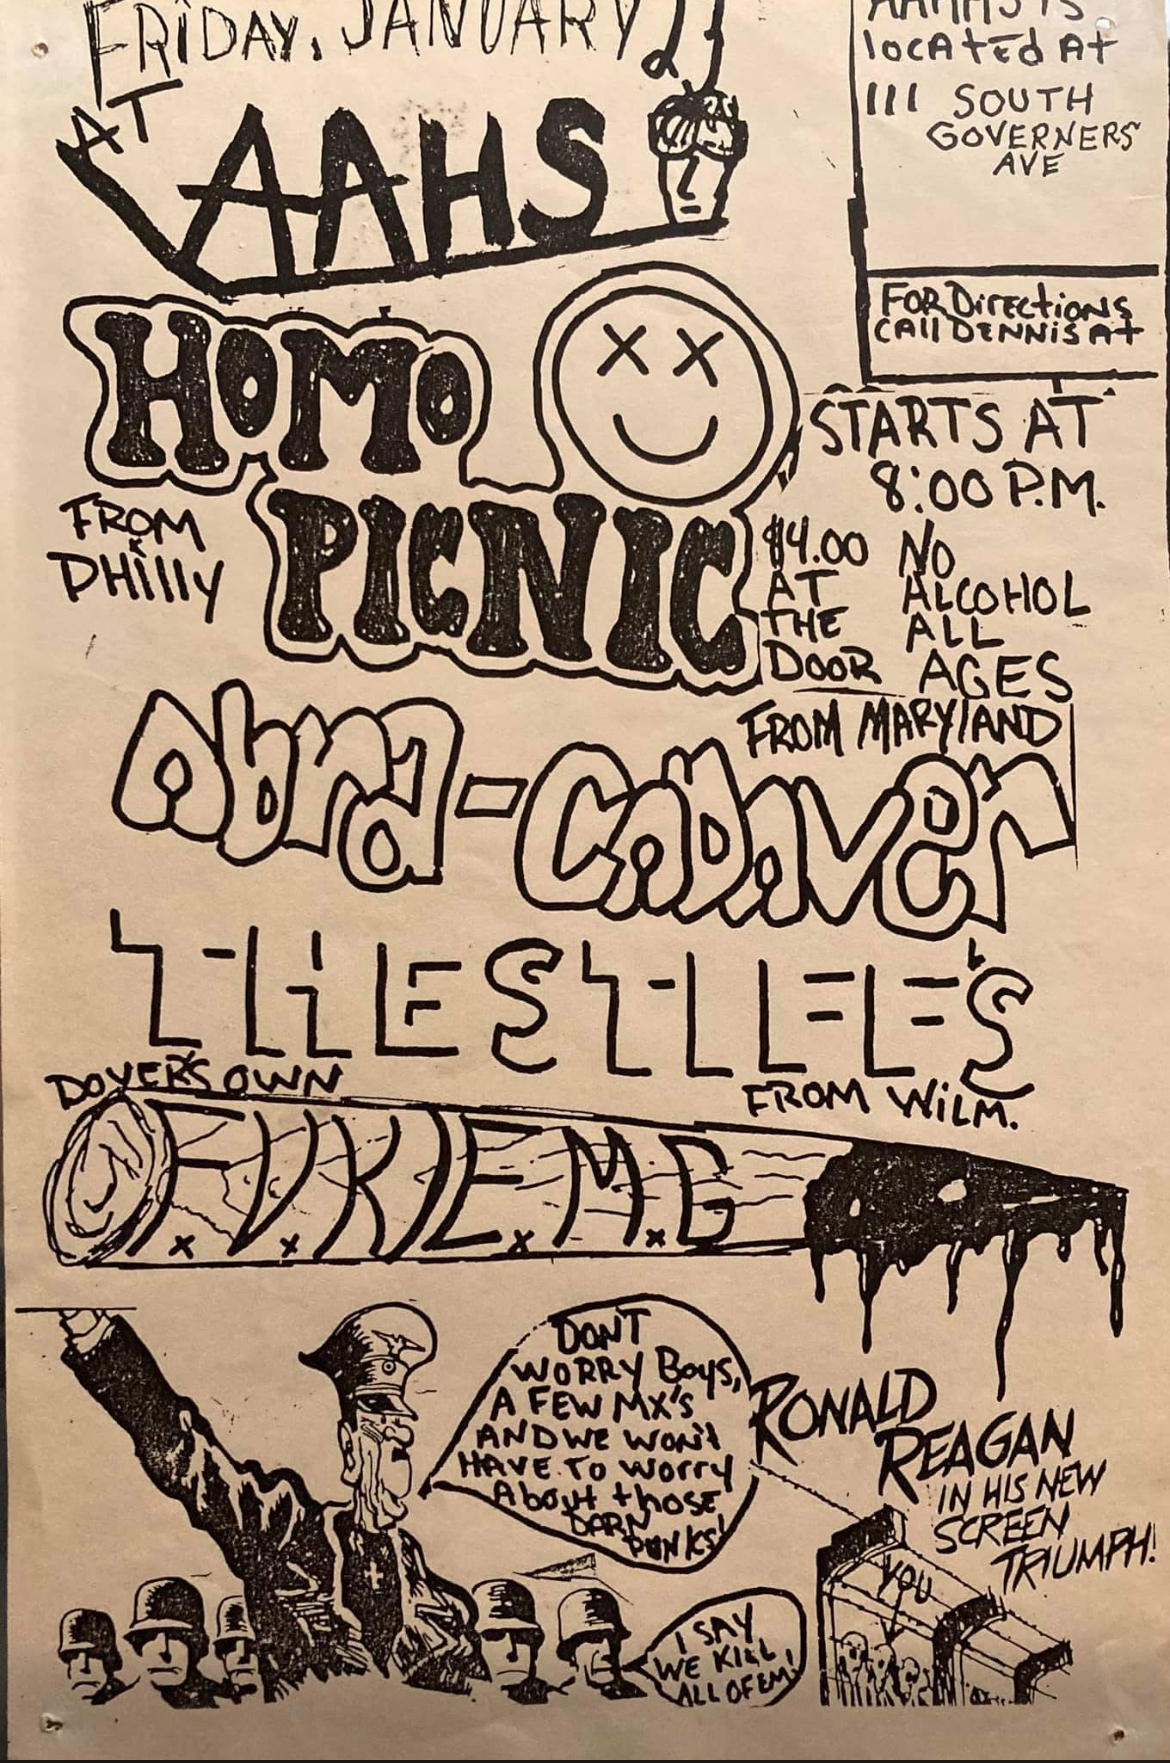 FRiDAY, JANUARY 23
AT
AAHS
AAHHS iS
locAted At
111 SOUTH
GOVERNERS
AVE
FOR Directions
CAll DENNIS At
HOMO
PICNIC
FROM
PHilly
STARTS AT
8:00 P.M.
$4.00
AT
THE
DOOR
NO
ALCOHOL
ALL
AGES
FROM MARYlAND
Abra-CADAVer
THE STEE'S
FROM WiLM.
DOVER'S OWN
F.V.K.E.M.G
DONT
WORRY Boys,
A FEW MX'S
AND WE WON't
HAVE TO Worry
About those
DARN
PUNKS!
I SAY
WE KILL
ALL OF EM!
RONALD
REAGAN
IN HIS NEW
SCREEN
TRIUMPH!
YOU